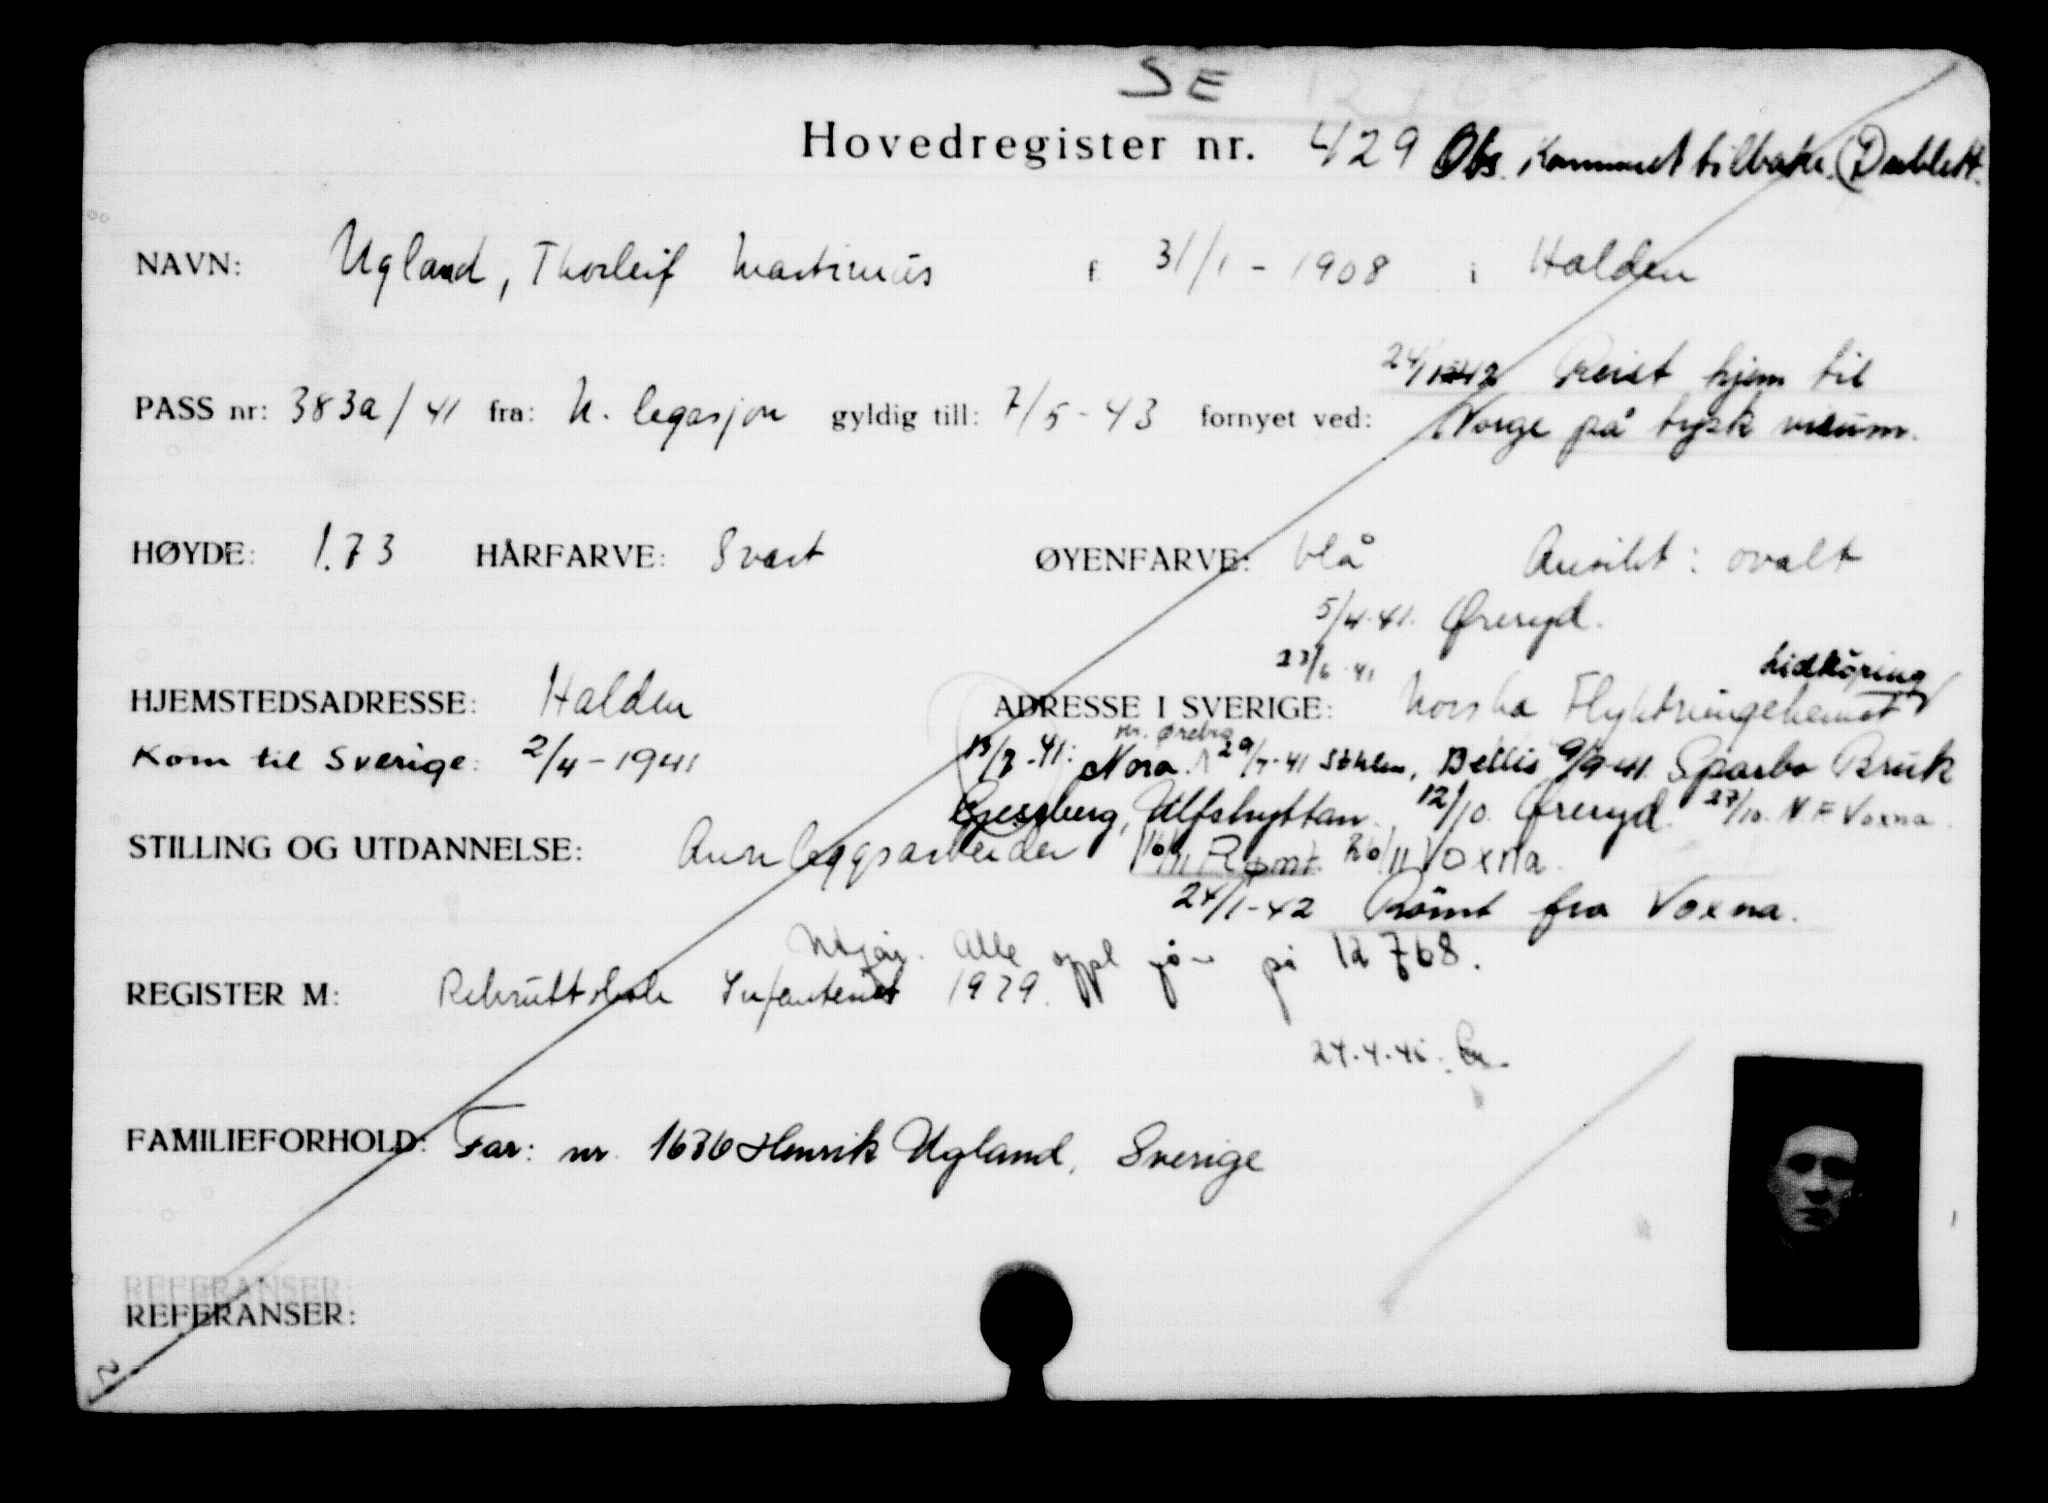 SE 12768
Hovedregister nr. 429 Obs. Kommet tilbake. Dublett.
NAVN: Ugland, Thorleif Martinius f. 31/1 - 1908 i Halden
24/1 42 Reist hjem til
PASS nr: 383a/41 fra: N. legasjon gyldig till: 7/5 - 43 fornyet ved: Norge på tysk visum.
HØYDE: 1.73 HÅRFARVE: Svart ØYENFARVE: blå Ansikt: ovalt
5/4.41. Øreryd.
23/6.41 Lidköping
HJEMSTEDSADRESSE: Halden ADRESSE I SVERIGE: Norska Flyktningehemet
nr. Ørebro
Kom til Sverige: 2/4 - 1941 13/7.41: Nora. 29/7.41 Sthlm, Bellis 9/9.41. Sparbo Bruk
Ulfshyttan. 12/10. Øreryd. 27/10. N F Voxna.
STILLING OG UTDANNELSE: Annleggsarbeider 16/11 Rømt. 26/11 Voxna.
24/1-42 Römt fra Voxna.
Utgår. Alle oppl på 12768.
REGISTER M: Rekruttskole Infanteriet 1929.
24.4.45.
FAMILIEFORHOLD: Far: nr. 1636 Henrik Ugland, Sverige
REFERANSER:
REFERANSER: